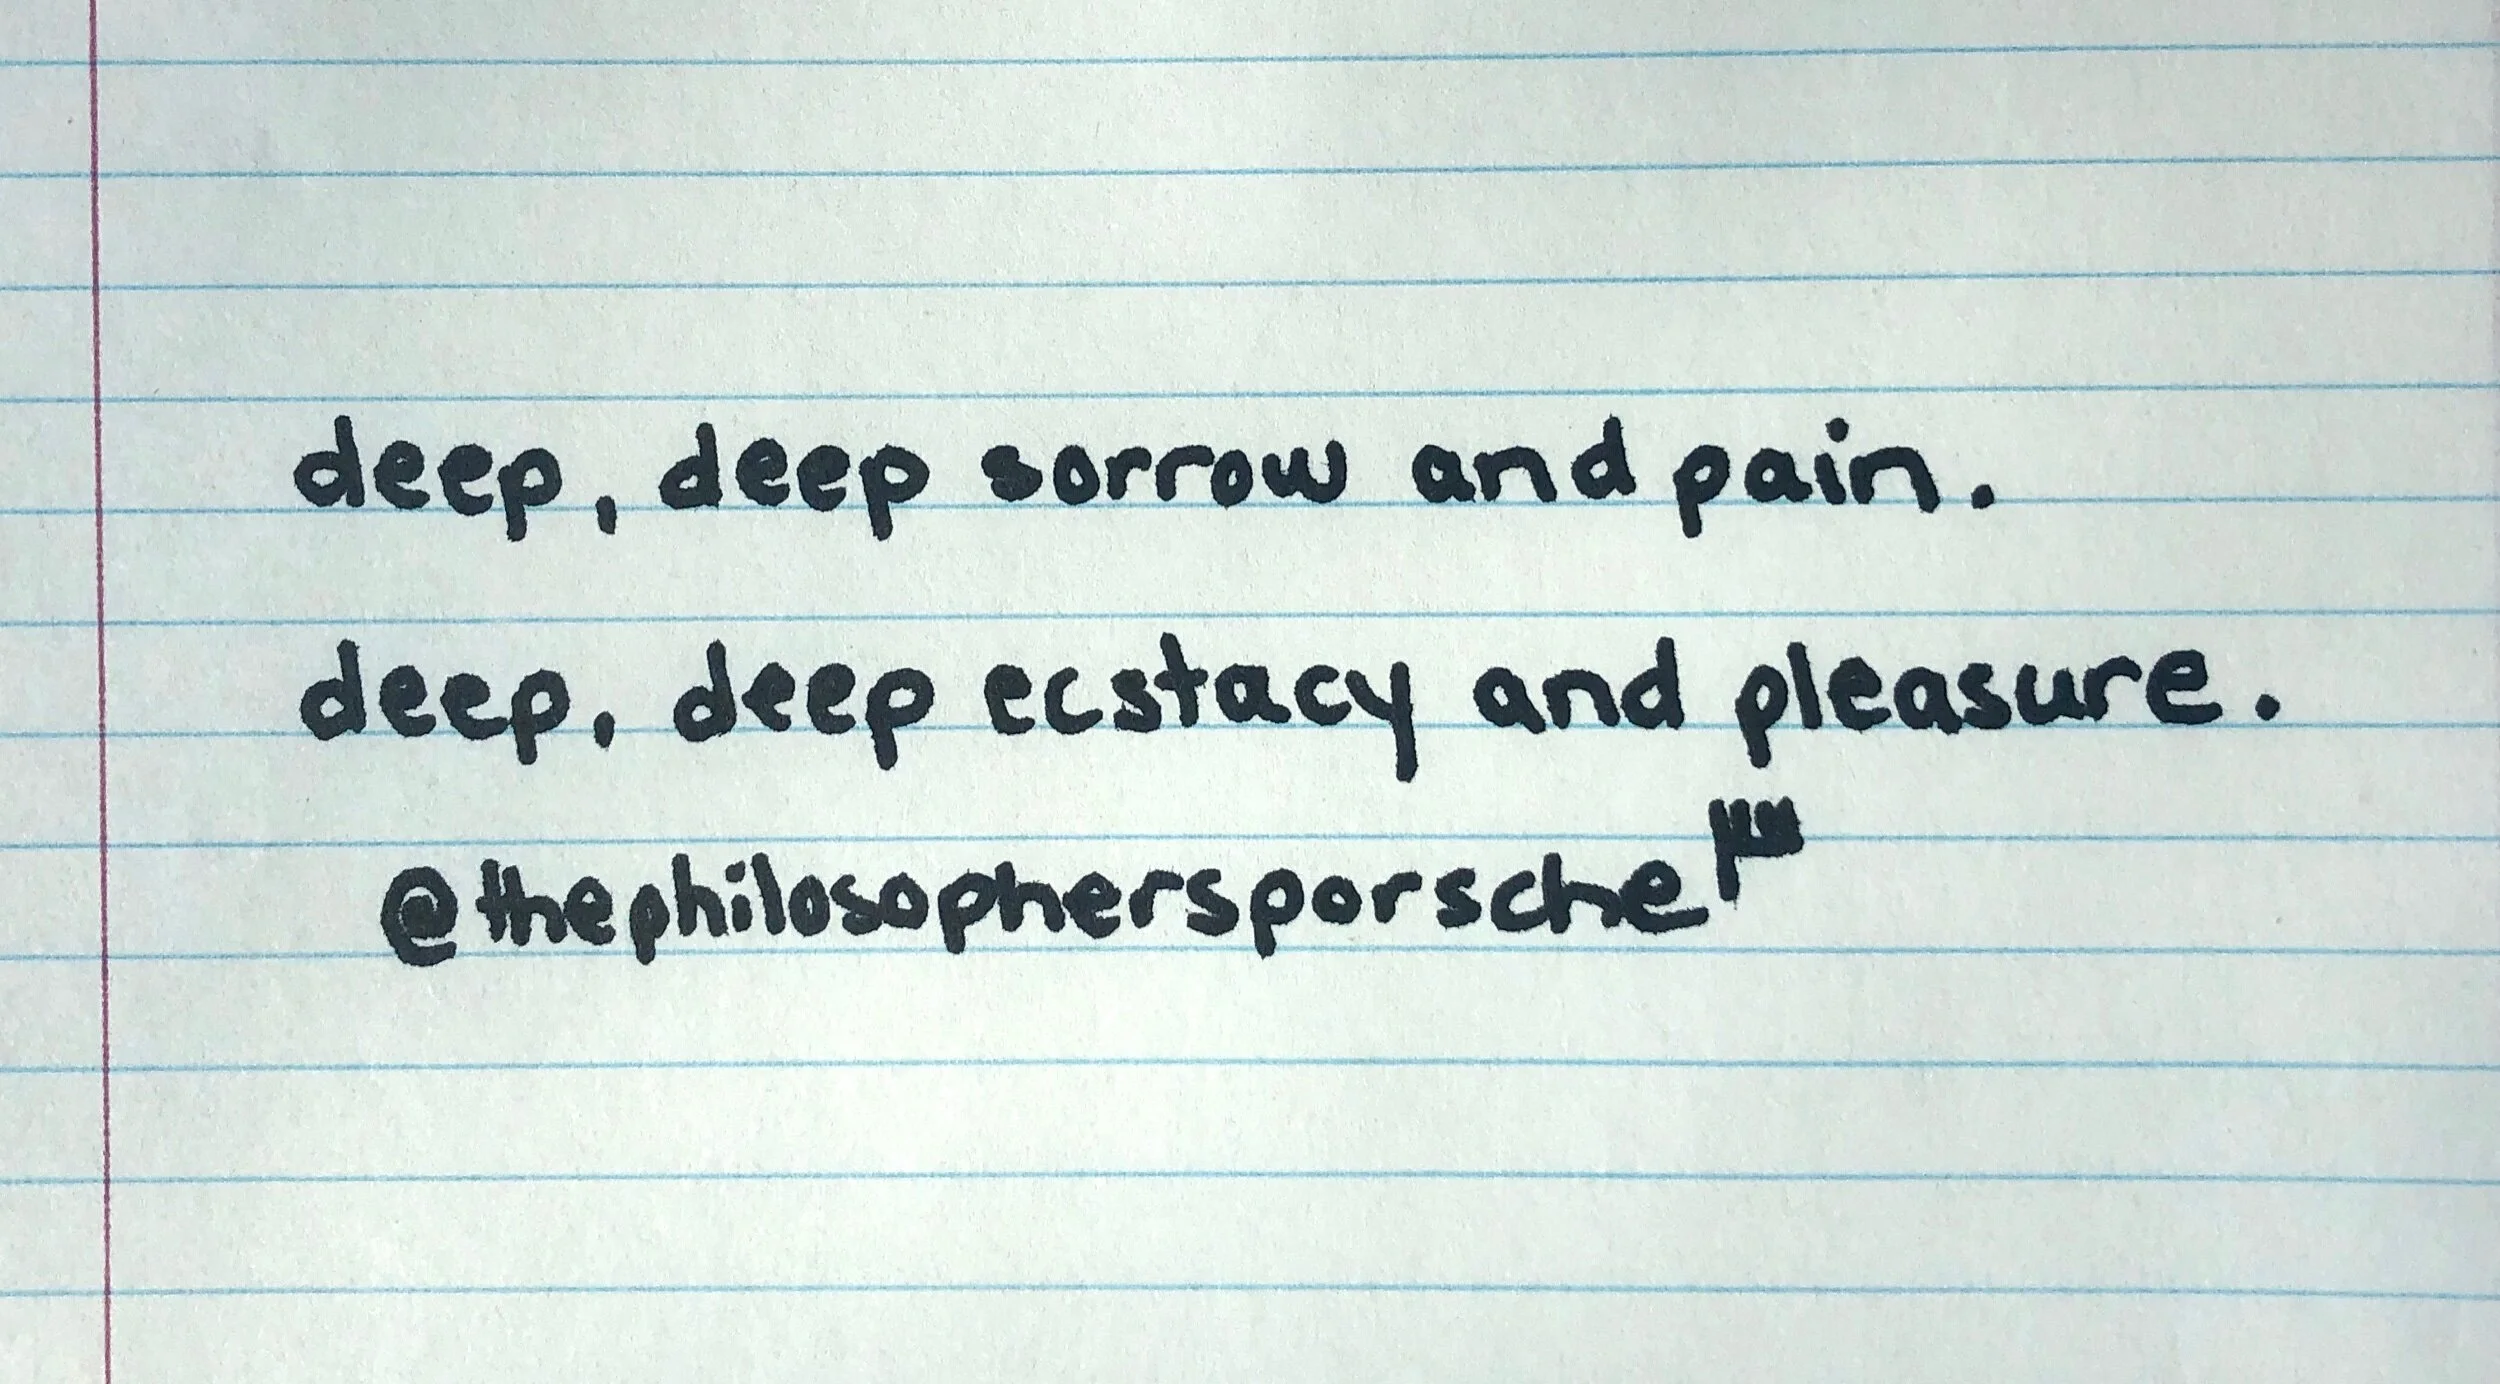 deep, deep sorrow and pain.
deep, deep ecstacy and pleasure.
@thephilosophersporsche